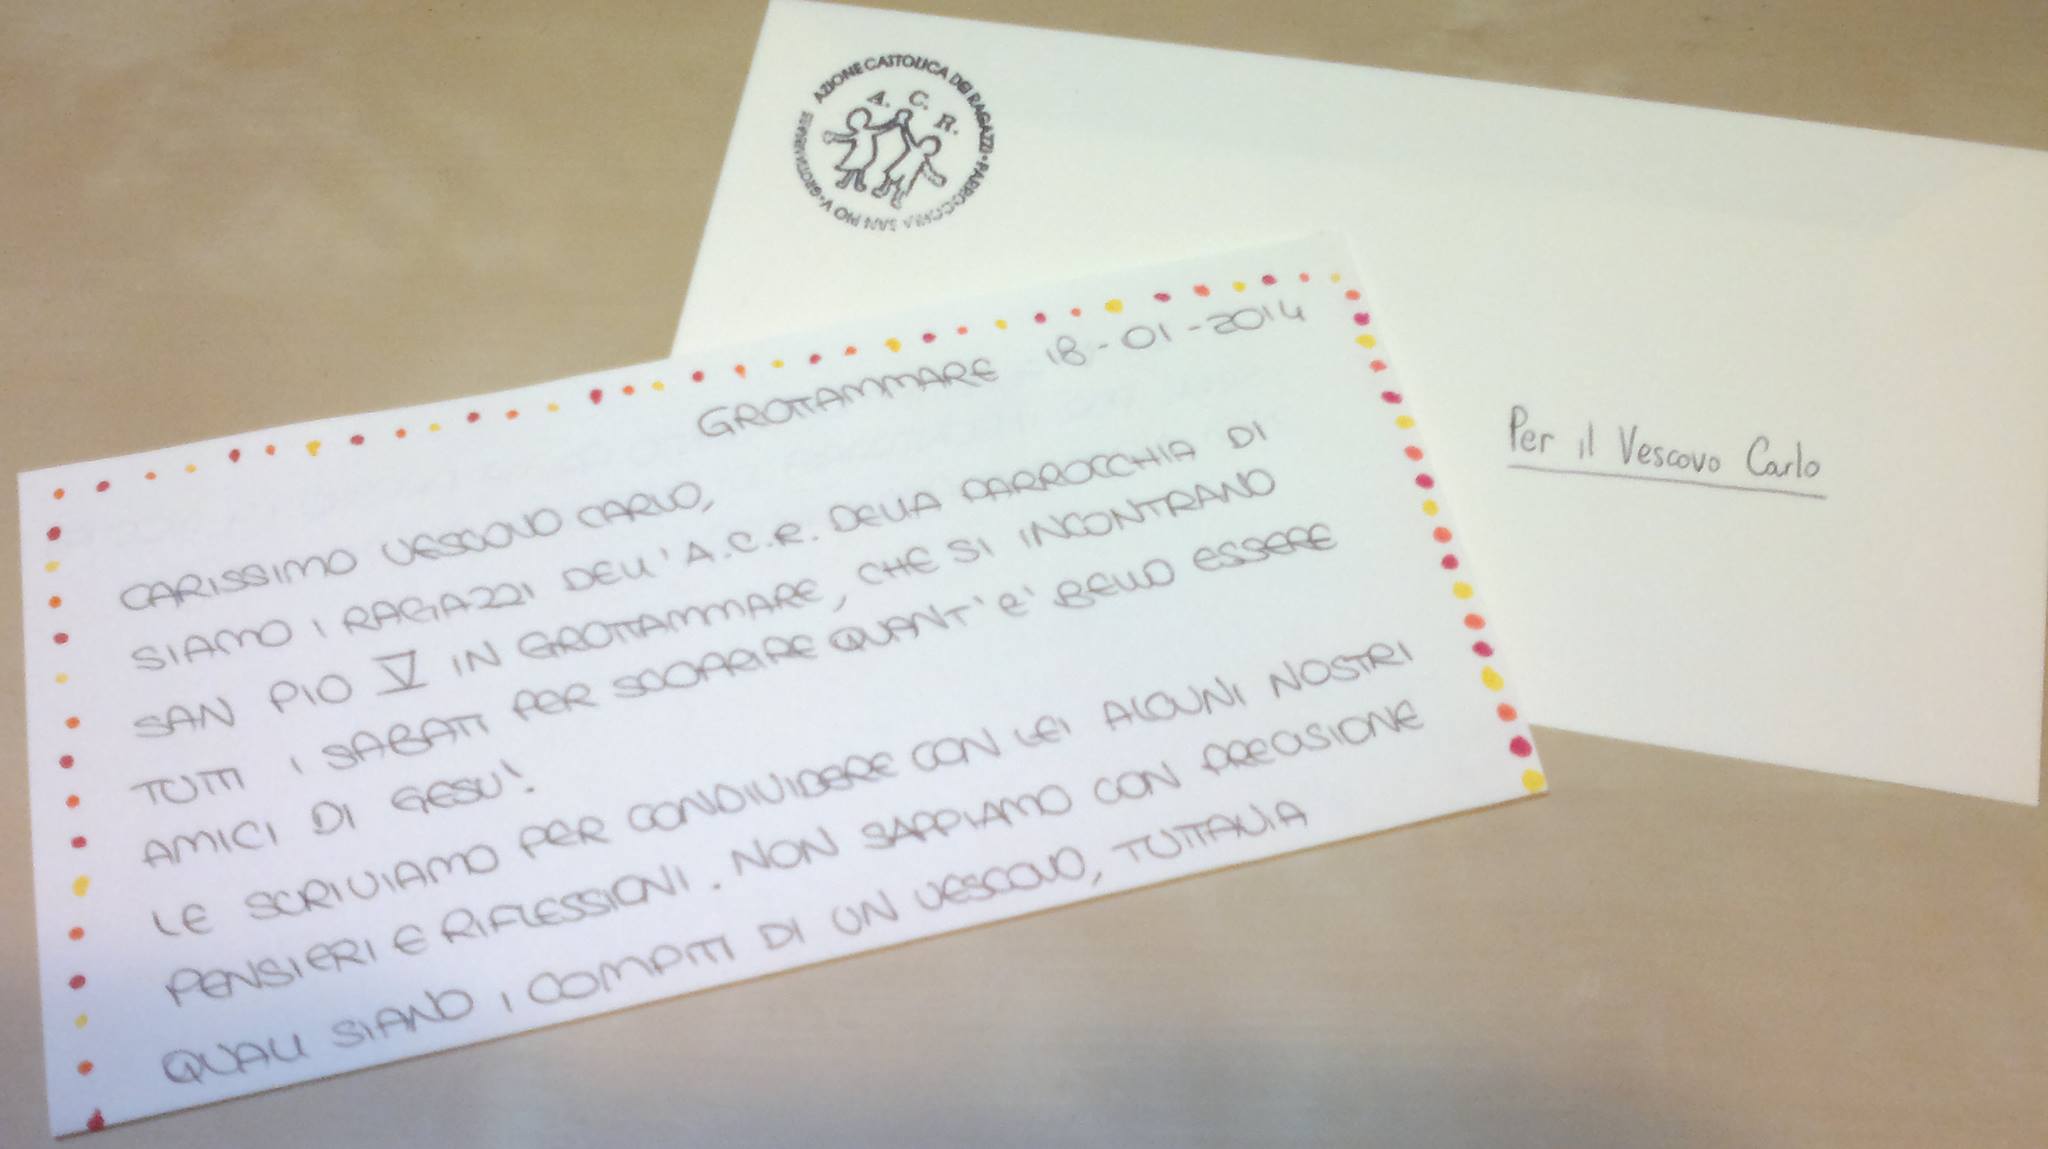 AZIONE CATTOLICA DEI RAGAZZI • PARROCCHIA SAN PIO V • GROTTAMMARE
A. C. R.
Per il Vescovo Carlo
GROTTAMMARE 18-01-2014
CARISSIMO VESCOVO CARLO,
SIAMO I RAGAZZI DELL'A.C.R. DELLA PARROCCHIA DI
SAN PIO V IN GROTTAMMARE, CHE SI INCONTRANO
TUTTI I SABATI PER SCOPRIRE QUANT'E' BELLO ESSERE
AMICI DI GESU'!
LE SCRIVIAMO PER CONDIVIDERE CON LEI ALCUNI NOSTRI
PENSIERI E RIFLESSIONI. NON SAPPIAMO CON PRECISIONE
QUALI SIANO I COMPITI DI UN VESCOVO, TUTTAVIA